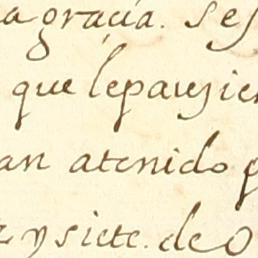 a gracia. Ses
que lepareсien
an atenido
y siete. de O